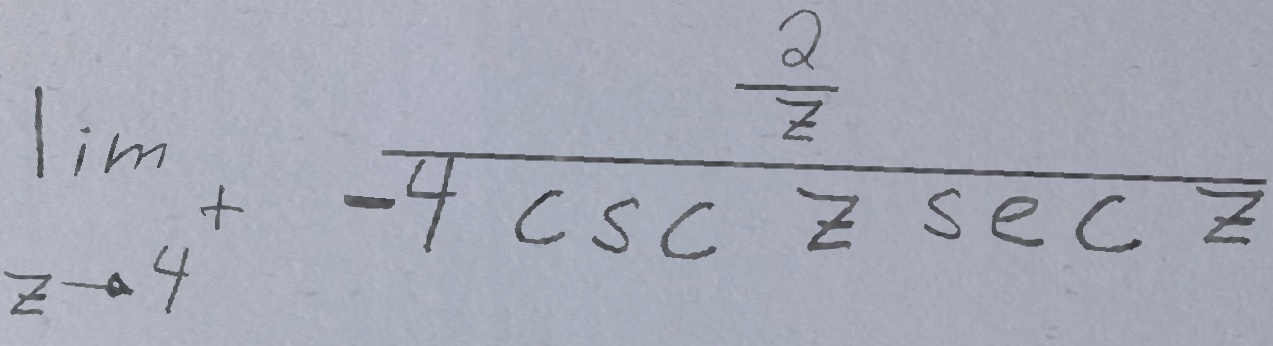 \lim_{z \to 4^+} \frac{\frac{2}{z}}{-4 \csc z \sec z}